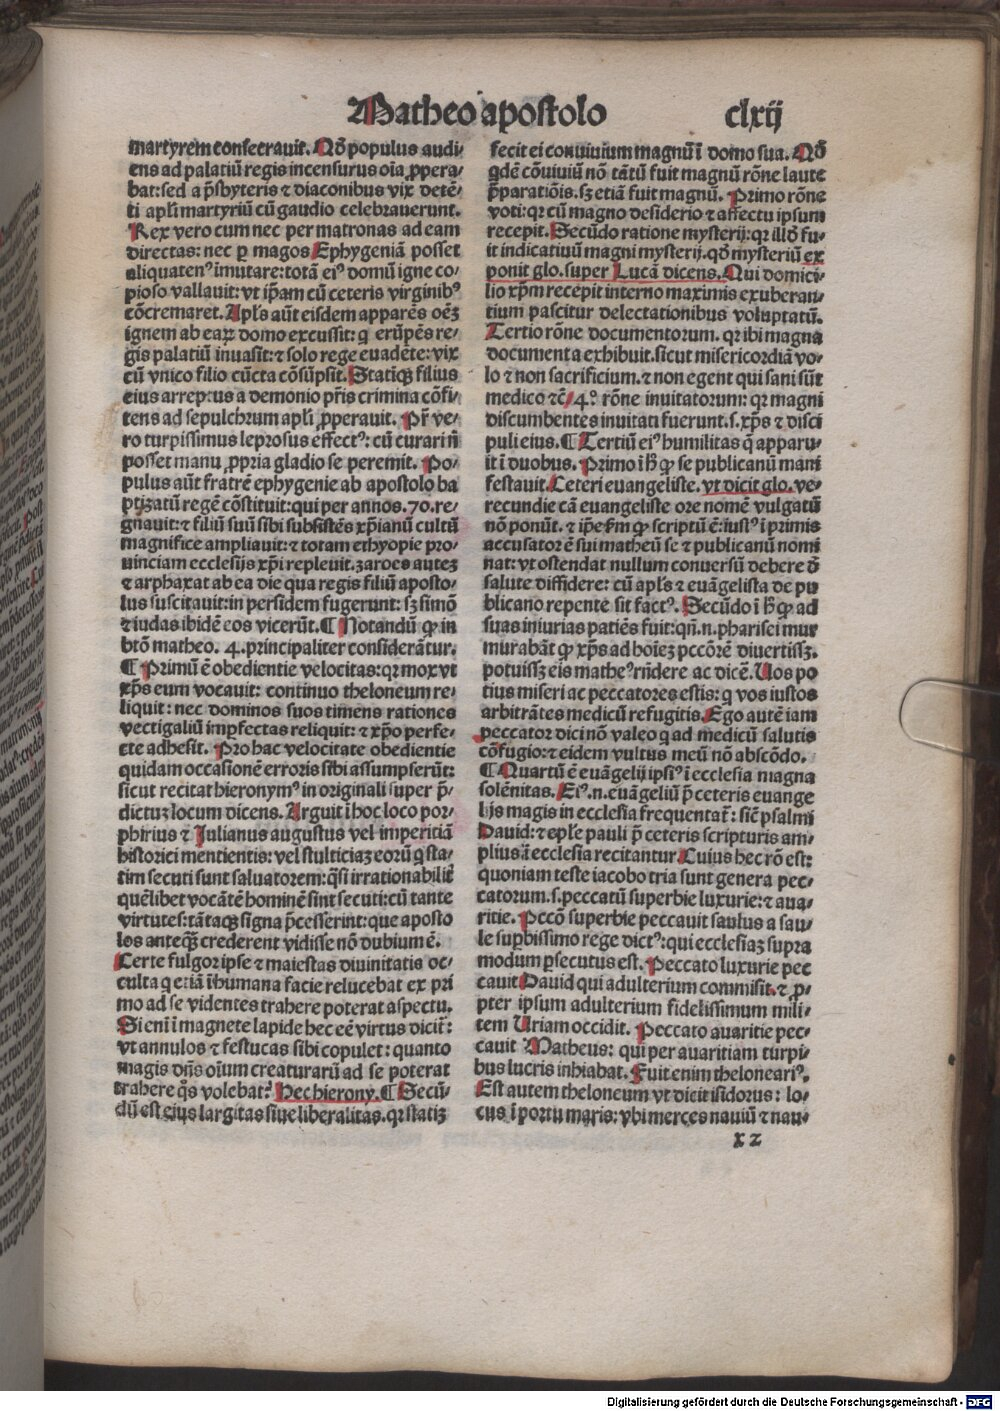 Matheo apostolo clxij
martyrem consecrauit. Qd̕ populus audi⸗
ens ad palatiū regis incensurus oīa ꝓpera⸗
bat: sed a p̄sbyteris ⁊ diaconibus vix detē⸗
ti apl̕i martyriū cū gaudio celebrauerunt.
Rex vero cum nec per matronas ad eam
directas: nec ꝑ magos Ephygeniā posset
aliquatenꝰ īmutare: totā eiꝰ domū igne co⸗
pioso vallauit: vt ip̄am cū ceteris virginibꝰ
cōcremaret. Apl̕s aūt eisdem apparēs oēꝫ
ignem ab eaꝝ domo excussit: q erūpēs re⸗
gis palatiū inuasit: ⁊ solo rege euadēte: vix
cū vnico filio cūcta cōsūpsit. Statimqꝫ filius
eius arreptus a demonio pr̄is crimina cōfi⸗
tens ad sepulchrum apl̕i ꝓperauit. Pr̄ ve⸗
ro turpissimus leprosus effectꝰ: cū curari n̄
posset manu ꝓpria gladio se peremit. Po⸗
pulus aūt fratrē ephygenie ab apostolo ba
ptiꝫatū regē cōstituit: qui per annos .70. re⸗
gnauit: ⁊ filiū suū sibi subsistēs xp̄ianū cultū
magnifice ampliauit: ⁊ totam ethyopie pro⸗
uinciam ecclesijs xp̄i repleuit. zaroes auteꝫ
⁊ arphaxat ab ea die qua regis filiū aposto⸗
lus suscitauit: in persidem fugerunt: sꝫ simō
⁊ iudas ibidē eos vicerūt. ¶ Notandū ꝙ in
btō matheo .4. principaliter considerātur.
¶ Primū ē obedientie velocitas: qꝛ mox vt
xp̄s eum vocauit: continuo theloneum re⸗
liquit: nec dominos suos timens rationes
vectigaliū imperfectas reliquit: ⁊ xp̄o perfe⸗
cte adhesit. Pro hac velocitate obedientie
quidam occasionē erroris sibi assumpserūt:
sicut recitat hieronymꝰ in originali super p̄⸗
dictuꝫ locum dicens. Arguit ī hoc loco por⸗
phirius ⁊ Julianus augustus vel imperitiā
historici mentientis: vel stulticiaꝫ eorū q̄ sta⸗
tim secuti sunt saluatorem: q̄si irrationabilit̕
quēlibet vocātē hominē sint secuti: cū tante
virtutes: tātaqꝫ signa p̄cesserint: que aposto
los anteqꝫ crederent vidisse nō dubium ē.
Certe fulgor ipse ⁊ maiestas diuinitatis oc⸗
culta q etiā ī humana facie relucebat ex pri
mo ad se videntes trahere poterat aspectu.
Si enī ī magnete lapide hec eē virtus dicit̕:
vt annulos ⁊ festucas sibi copulet: quanto
magis dn̄s oīum creaturarū ad se poterat
trahere q̄s volebat? Hec hierony. ¶ Secū⸗
dū est eius largitas siue liberalitas. qꝛ statiꝫ
fecit ei conuiuium magnū ī domo sua. Qd̕
qdē cōuiuiū nō tātū fuit magnū rōne laute
p̄parationis. sꝫ etiā fuit magnū. Primo rōne
voti: qꝛ cū magno desiderio ⁊ affectu ipsum
recepit. Secūdo ratione mysterij: qꝛ illd̕ fu⸗
it indicatiuū magni mysterij. qd̕ mysteriū ex
ponit glo. super Lucā dicens. Qui domici⸗
lio xp̄m recepit interno maximis exuberan⸗
tium pascitur delectationibus voluptatū.
Tertio rōne documentorum. qꝛ ibi magna
documenta exhibuit. sicut misericordiā vo⸗
lo ⁊ non sacrificium. ⁊ non egent qui sani sūt
medico ⁊c̄. 4.º rōne inuitatorum: qꝛ magni
discumbentes inuitati fuerunt. s. xp̄s ⁊ disci
puli eius. ¶ Tertiū eiꝰ humilitas q̄ apparu⸗
it ī duobus. Primo ī h̕ ꝙ se publicanū mani
festauit. Ceteri euangeliste. vt dicit glo. ve⸗
recundie cā euangeliste ore nomē vulgatū
nō ponūt. ⁊ ip̄e fm̄ ꝙ scriptū ē: iustꝰ ī primis
accusator ē sui matheū se ⁊ publicanū nomi
nat: vt ostendat nullum conuersū debere d̕
salute diffidere: cū apl̕s ⁊ euāgelista de pu
blicano repente sit factꝰ. Secūdo ī h̕ ꝙ ad
suas iniurias patiēs fuit: qn̄ .n. pharisei mur
murabāt ꝙ xp̄s ad hoīeꝫ pccōrē diuertissꝫ.
potuissꝫ eis matheꝰ rn̄dere ac dicē. Uos po
tius miseri ac peccatores estis: q vos iustos
arbitrātes medicū refugitis. Ego autē iam
peccator dici nō valeo q ad medicū salutis
cōfugio: ⁊ eidem vultus meū nō abscōdo.
¶ Quartū ē euāgelij ipsiꝰ ī ecclesia magna
solēnitas. Eiꝰ .n. euāgeliū p̄ ceteris euange
lijs magis in ecclesia frequentat̕: sic̄ psalmi
Dauid: ⁊ eple pauli p̄ ceteris scripturis am⸗
plius ī ecclesia recitantur. Cuius hec rō est:
quoniam teste iacobo tria sunt genera pec⸗
catorum. s. peccatū superbie luxurie: ⁊ aua⸗
ritie. Pccō superbie peccauit saulus a sau⸗
le suꝑbissimo rege dictꝰ: qui ecclesiaꝫ supra
modum ꝑsecutus est. Peccato luxurie pec
cauit Dauid qui adulterium commisit. ⁊ ꝓ⸗
pter ipsum adulterium fidelissimum mili⸗
tem Uriam occidit. Peccato auaritie pec⸗
cauit Matheus: qui per auaritiam turpi⸗
bus lucris inhiabat. Fuit enim thelonearꝰ.
Est autem theloneum vt dicit isidorus: lo⸗
cus ī portu maris: vbi merces nauiū ⁊ nau⸗
x 2
Digitalisierung gefördert durch die Deutsche Forschungsgemeinschaft - DFG